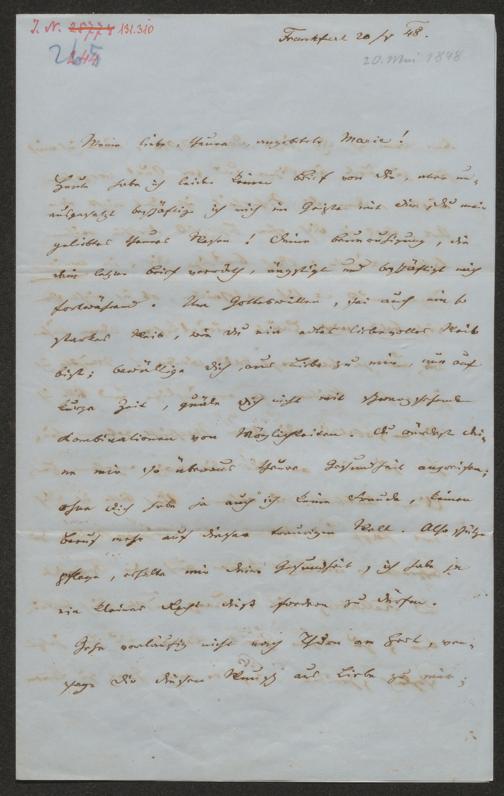 J. N. 20774 131.310
265
Frankfurt 20/5 48.
20. Mai 1848
Meine liebe, theure, angebetete Marie!
Heute habe ich leider keinen Brief von Dir, aber un-
ausgesetzt beschäftige ich mich im Geiste mit Dir, Du mein
geliebtes theures Wesen! Deine Beunruhigung, die
Dein letzter Brief verräth, ängstigt und beschäftigt mich
fortwährend. Um Gotteswillen, sei auch ein so
starkes Weib, wie Du ein edles liebevolles Weib
bist; bewältige Dich, aus Liebe zu mir, nur auf
kurze Zeit, quäle Dich nicht mit schwarzsehenden
Kombinationen von Möglichkeiten. Du würdest Dei-
ne mir so überaus theure Gesundheit angreifen;
ohne Dich habe ja auch ich keine Freude, keinen
Beruf mehr auf dieser traurigen Welt. Also schütze
pflege, erhalte mir Deine Gesundheit, ich habe ja
ein kleines Recht dieß fordern zu dürfen.
Gehe vorläufig nicht nach Thurn am Hart, ver-
sage Dir diesen Wunsch aus Liebe zu mir;